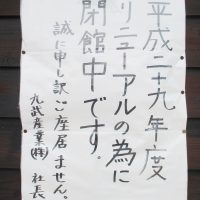 平成二十九年度
リニューアルの為に
閉館中です。
誠に申し訳ご座居ません。
九武産業(株) 社長